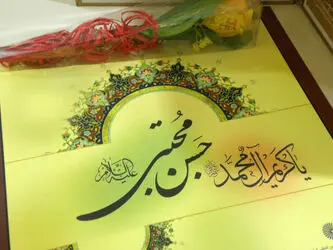 یا کریم آل محمد
حسن مجتبی
علیه السلام